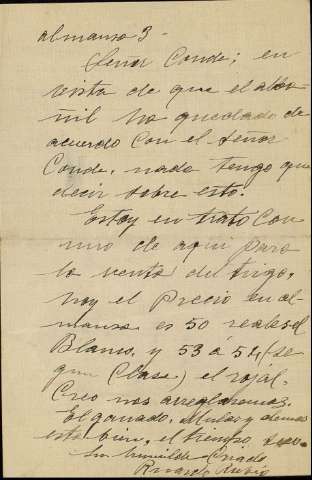 Almansa 3 -
Señor Conde; en
vista de que el alba-
ñil ha quedado de
acuerdo con el señor
Conde, nada tengo que
decir sobre esto.
Estoy en trato con
uno de aqui para
la venta de trigo,
hoy el Precio en al-
mansa es 50 reales el
Blanco, y 53 á 54 (se
gun Clase) el rojál.
Creo nos arreglaremos.
El ganado, Mulas y demas
esta bien, el tiempo
Su humilde Criado
Ricardo Rubio